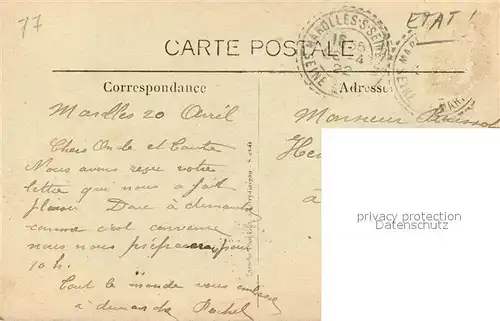 77
ETAT !
MAROLLES-S-SEINE
CARTE POSTALE
Correspondance
Adresse
Marolles 20 Avril
Monsieur
Chers Oncle et Tante
Nous avons reçu votre
lettre qui nous a fait
plaisir Donc à dimanche
comme c'est convenu
nous nous préparerons pour
10 h.
Tout le monde vous embrasse
à dimanche Rachel
privacy protection
Datenschutz